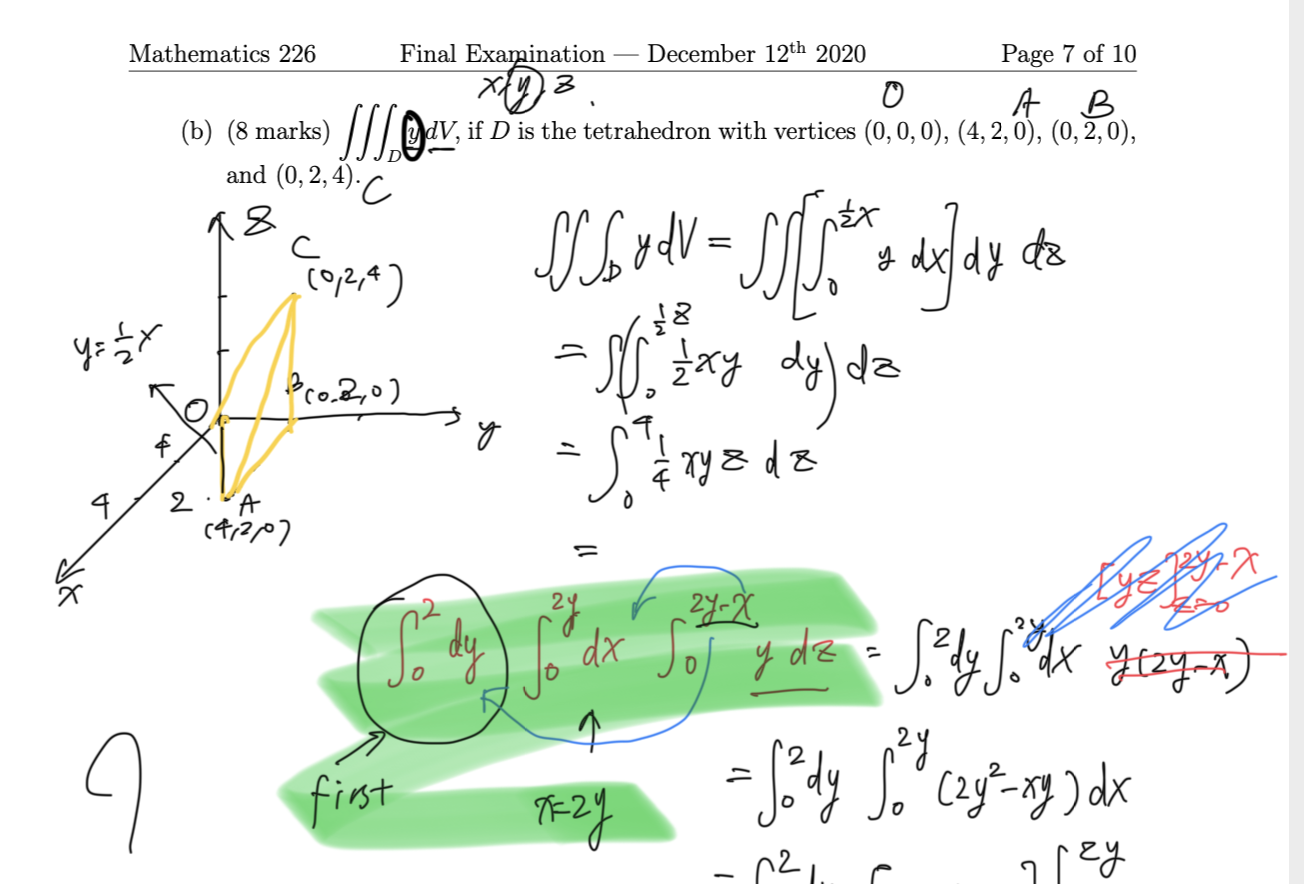 Mathematics 226 Final Examination — December 12th 2020 Page 7 of 10
x, y, z
O A B
(b) (8 marks) ∭_D y dV, if D is the tetrahedron with vertices (0, 0, 0), (4, 2, 0), (0, 2, 0),
and (0, 2, 4). C
z
C
(0,2,4)
y=½x
B(0,2,0)
O
y
4
4
2
A
(4,2,0)
x
∭_D y dV = ∬[∫_0^{½x} y dx] dy dz
= ∫(∫_0^{½z} ½xy dy) dz
= ∫_0^4 ¼ xyz dz
=
[yz]_{z=0}^{2y-x}
∫_0^2 dy ∫_0^{2y} dx ∫_0^{2y-x} y dz = ∫_0^2 dy ∫_0^{2y} dx y(2y-x)
first
x=2y
= ∫_0^2 dy ∫_0^{2y} (2y²-xy) dx
2y